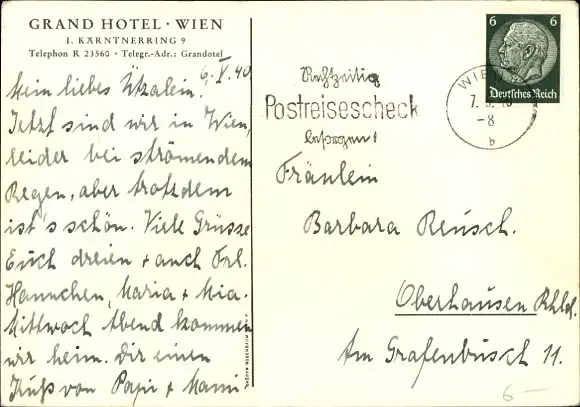 GRAND HOTEL · WIEN
I. KÄRNTNERRING 9
Telephon R 23560 · Telegr.-Adr.: Grandotel
6. V. 40
Mein liebes
Jetzt sind wir in Wien,
leider bei strömendem
Regen, aber trotzdem
ist's schön. Viele Grüsse
Euch dreien + auch Frl.
Hannchen, Maria + Mia.
Mittwoch Abend kommen
wir heim. Dir einen
Kuß von Papi + Mami
Rechtzeitig
Postreisescheck
besorgen!
WIEN
7. 5. 40
-8
b
6 6
Deutsches Reich
Fräulein
Barbara Reusch.
Oberhausen Rhld.
Am Grafenbusch 11.
6 –